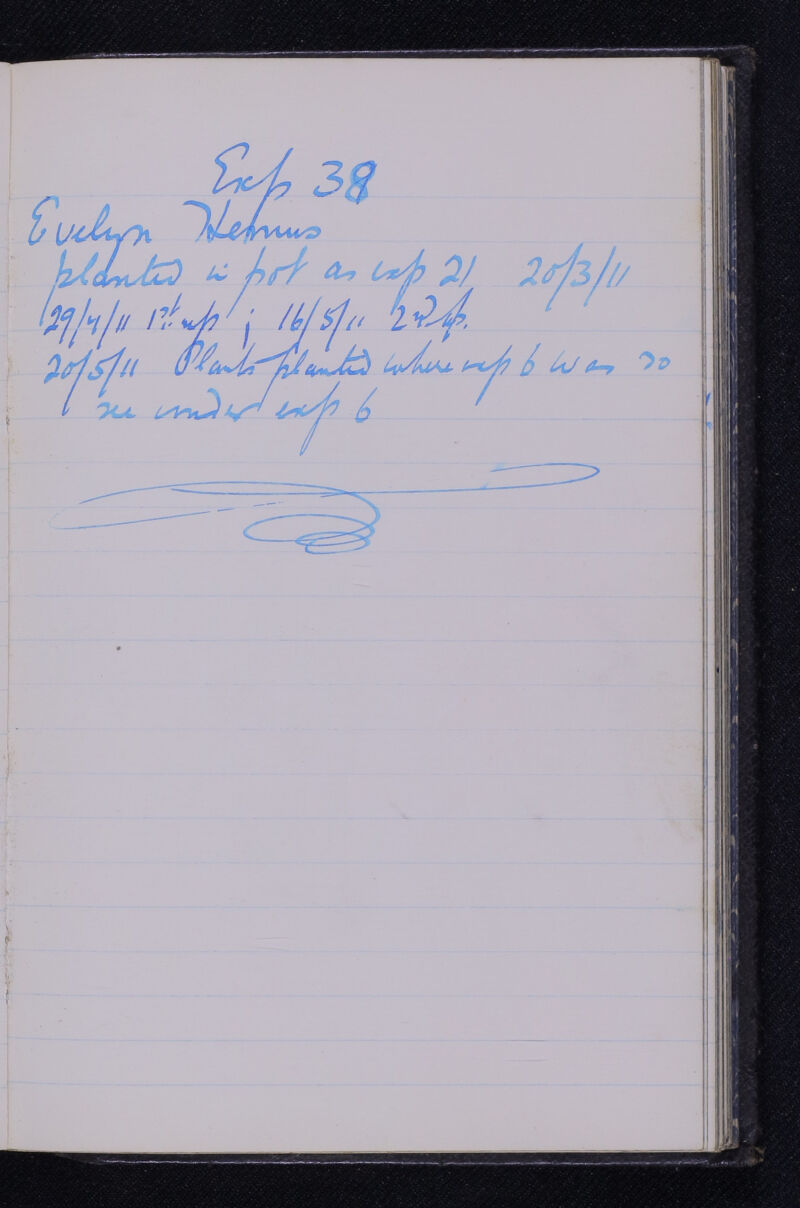 Exp 38
Evelyn Hemus
planted in pot as exp 21 20/3/11
29/4/11 1st up ; 16/5/11 2nd up.
20/5/11 Plants planted where exp 6 was so
see under exp 6